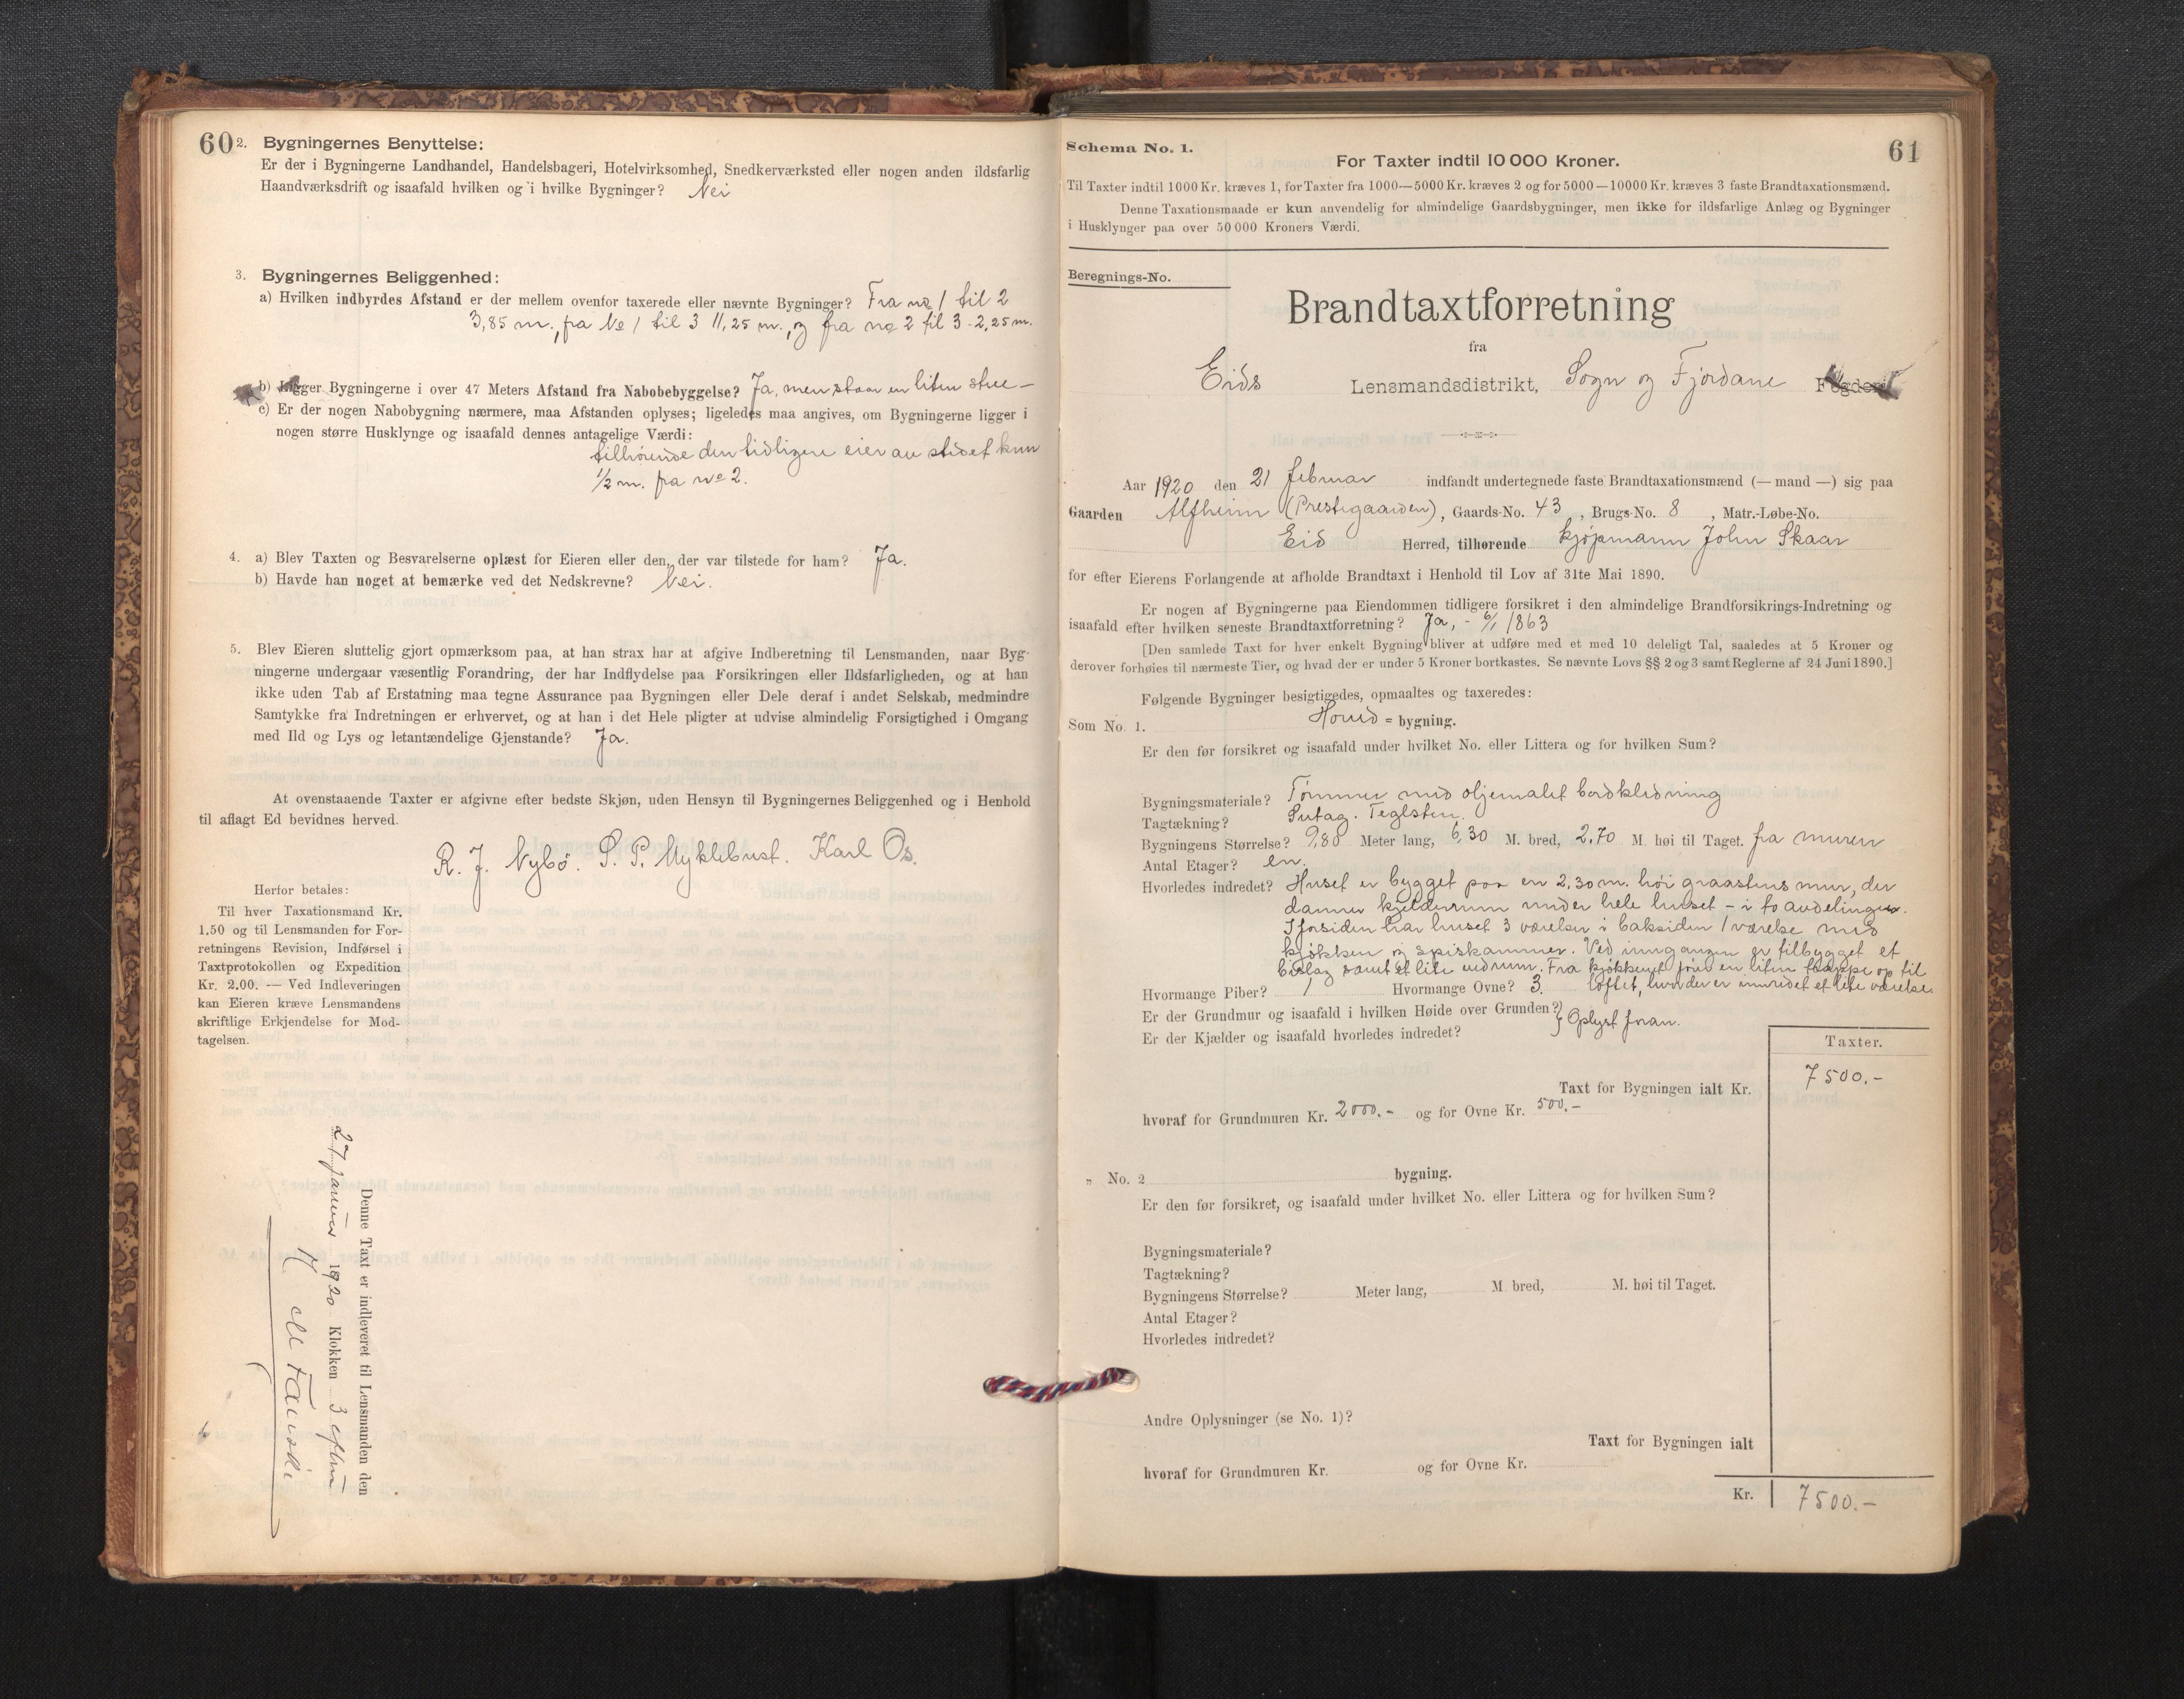 60
2. Bygningernes Benyttelse:
Er der i Bygningerne Landhandel, Handelsbageri, Hotelvirksomhed, Snedkerværksted eller nogen anden ildsfarlig
Haandværksdrift og isaafald hvilken og i hvilke Bygninger? Nei
3. Bygningernes Beliggenhed:
a) Hvilken indbyrdes Afstand er der mellem ovenfor taxerede eller nævnte Bygninger? Fra no 1 til 2
3,85 m., fra No 1 til 3 11,25 m., og fra no 2 til 3 - 2,25 m.
b) Ligger Bygningerne i over 47 Meters Afstand fra Nabobebyggelse? Ja, men staar en liten stue –
c) Er der nogen Nabobygning nærmere, maa Afstanden oplyses; ligeledes maa angives, om Bygningerne ligger i
nogen større Husklynge og isaafald dennes antagelige Værdi:
tilhørende den tidligere eier av stedet kun
1/2 m. fra no 2.
4. a) Blev Taxten og Besvarelserne oplæst for Eieren eller den, der var tilstede for ham? Ja.
b) Havde han noget at bemærke ved det Nedskrevne? Nei.
5. Blev Eieren sluttelig gjort opmærksom paa, at han strax har at afgive Indberetning til Lensmanden, naar Byg-
ningerne undergaar væsentlig Forandring, der har Indflydelse paa Forsikringen eller Ildsfarligheden, og at han
ikke uden Tab af Erstatning maa tegne Assurance paa Bygningen eller Dele deraf i andet Selskab, medmindre
Samtykke fra Indretningen er erhvervet, og at han i det Hele pligter at udvise almindelig Forsigtighed i Omgang
med Ild og Lys og letantændelige Gjenstande? Ja.
At ovenstaaende Taxter er afgivne efter bedste Skjøn, uden Hensyn til Bygningernes Beliggenhed og i Henhold
til aflagt Ed bevidnes herved.
R. J. Nybö. S. P. Myklebust. Karl Os.
Herfor betales:
Til hver Taxationsmand Kr.
1,50 og til Lensmanden for For-
retningens Revision, Indførsel i
Taxtprotokollen og Expedition
Kr. 2.00. — Ved Indleveringen
kan Eieren kræve Lensmandens
skriftlige Erkjendelse for Mod-
tagelsen.
Denne Taxt er indleveret til Lensmanden den
27 januar 1920 Klokken 3 efterm
61
Schema No. 1.
For Taxter indtil 10 000 Kroner.
Til Taxter indtil 1000 Kr. kræves 1, for Taxter fra 1000—5000 Kr. kræves 2 og for 5000—10000 Kr. kræves 3 faste Brandtaxationsmænd.
Denne Taxationsmaade er kun anvendelig for almindelige Gaardsbygninger, men ikke for ildsfarlige Anlæg og Bygninger
i Husklynger paa over 50 000 Kroners Værdi.
Beregnings-No.
Brandtaxtforretning
fra
Eids Lensmandsdistrikt, Sogn og Fjordane Fogderi
Aar 1920 den 21 februar indfandt undertegnede faste Brandtaxationsmænd (— mand —) sig paa
Gaarden Alfheim (Prestegaarden), Gaards-No. 43, Brugs-No. 8, Matr.-Løbe-No.
Eid Herred, tilhørende kjøpmann John Skaar
for efter Eierens Forlangende at afholde Brandtaxt i Henhold til Lov af 31te Mai 1890.
Er nogen af Bygningerne paa Eiendommen tidligere forsikret i den almindelige Brandforsikrings-Indretning og
isaafald efter hvilken seneste Brandtaxtforretning? Ja, - 6/1 1863
[Den samlede Taxt for hver enkelt Bygning bliver at udføre med et med 10 deleligt Tal, saaledes at 5 Kroner og
derover forhøies til nærmeste Tier, og hvad der er under 5 Kroner bortkastes. Se nævnte Lovs §§ 2 og 3 samt Reglerne af 24 Juni 1890.]
Følgende Bygninger besigtigedes, opmaaltes og taxeredes:
Som No. 1. Hoved = bygning.
Er den før forsikret og isaafald under hvilket No. eller Littera og for hvilken Sum?
Bygningsmateriale? Tømmer med oljemalet bordklædning
Tagtækning? Sutag. Teglsten.
Bygningens Størrelse? 9,80 Meter lang, 6,30 M. bred, 2,70 M. høi til Taget. fra muren
Antal Etager? en.
Hvorledes indredet? Huset er bygget paa en 2,30 m. höi graastens mur, der
danner kjelderrum under hele huset – i to avdelinger.
I forsiden har huset 3 værelser i baksiden 1 værelse med
kjøkken og spiskammer. Ved inngangen er tilbygget et
bislag samt et lite udrum. Fra kjøkkenet fører en liten trappe op til
Hvormange Piber? 1 Hvormange Ovne? 3. loftet, hvor der er innredet et lite værelse.
Er der Grundmur og isaafald i hvilken Høide over Grunden? } Oplyst foran.
Er der Kjælder og isaafald hvorledes indredet?
Taxter.
Taxt for Bygningen ialt Kr. 7500.-
hvoraf for Grundmuren Kr. 2000.- og for Ovne Kr. 500.-
" No. 2 bygning.
Er den før forsikret, og isaafald under hvilket No. eller Littera og for hvilken Sum?
Bygningsmateriale?
Tagtækning?
Bygningens Størrelse? Meter lang, M. bred, M. høi til Taget.
Antal Etager?
Hvorledes indredet?
Andre Oplysninger (se No. 1)?
Taxt for Bygningen ialt
hvoraf for Grundmuren Kr. og for Ovne Kr.
Kr. 7500.-